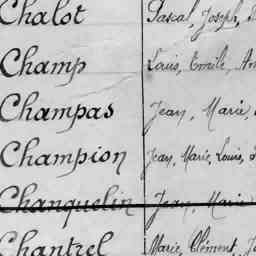 Chalot Pascal, Joseph,
Champ Louis, Emile, Am
Champas Jean, Marie,
Champion Jean, Marie, Louis,
Chanquelin Jean, Marie
Chantrel Marie, Clément, J